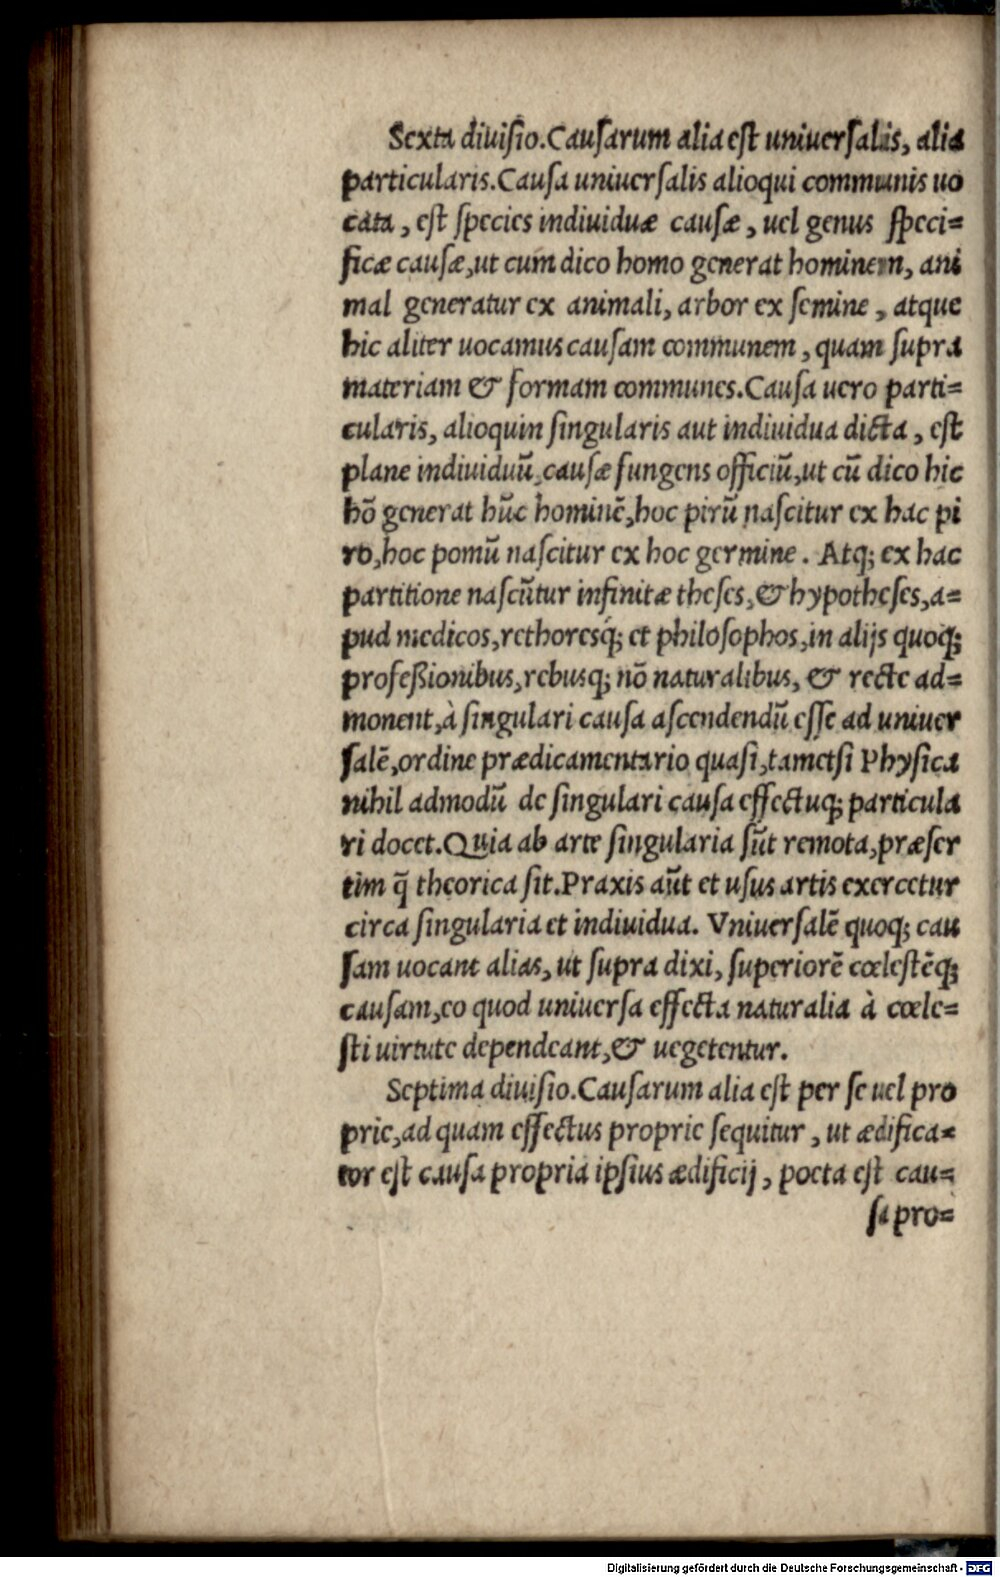 Sexta diuiſio. Cauſarum alia eſt uniuerſalis, alia
particularis. Cauſa uniuerſalis alioqui communis uo
cata, eſt ſpecies indiuiduæ cauſæ, uel genus ſpeci=
ficæ cauſæ, ut cum dico homo generat hominem, ani
mal generatur ex animali, arbor ex ſemine, atque
hic aliter uocamus cauſam communem, quam ſupra
materiam & formam communes. Cauſa uero parti=
cularis, alioquin ſingularis aut indiuidua dicta, eſt
plane indiuiduũ, cauſæ fungens officiũ, ut cũ dico hic
hõ generat hũc hominẽ, hoc pirũ naſcitur ex hac pi
ro, hoc pomũ naſcitur ex hoc germine. Atq; ex hac
partitione naſcũtur infinitæ theſes, & hypotheſes, a=
pud medicos, rethoresq́; et philoſophos, in alijs quoq;
profeßionibus, rebusq; nõ naturalibus, & recte ad=
monent, à ſingulari cauſa aſcendendũ eſſe ad uniuer
ſalẽ, ordine prædicamentario quaſi, tametſi Phyſica
nihil admodũ de ſingulari cauſa effectuq; particula
ri docet. Quia ab arte ſingularia ſũt remota, præſer
tim q̃ theorica ſit. Praxis aũt et uſus artis exercetur
circa ſingularia et indiuidua. Vniuerſalẽ quoq; cau
ſam uocant alias, ut ſupra dixi, ſuperiorẽ cœleſtẽq;
cauſam, eo quod uniuerſa effecta naturalia à cœle=
ſti uirtute dependeant, & uegetentur.
Septima diuiſio. Cauſarum alia eſt per ſe uel pro
prie, ad quam effectus proprie ſequitur, ut ædifica=
tor eſt cauſa propria ipſius ædificij, poeta eſt cau=
ſa pro=
Digitalisierung gefördert durch die Deutsche Forschungsgemeinschaft - DFG